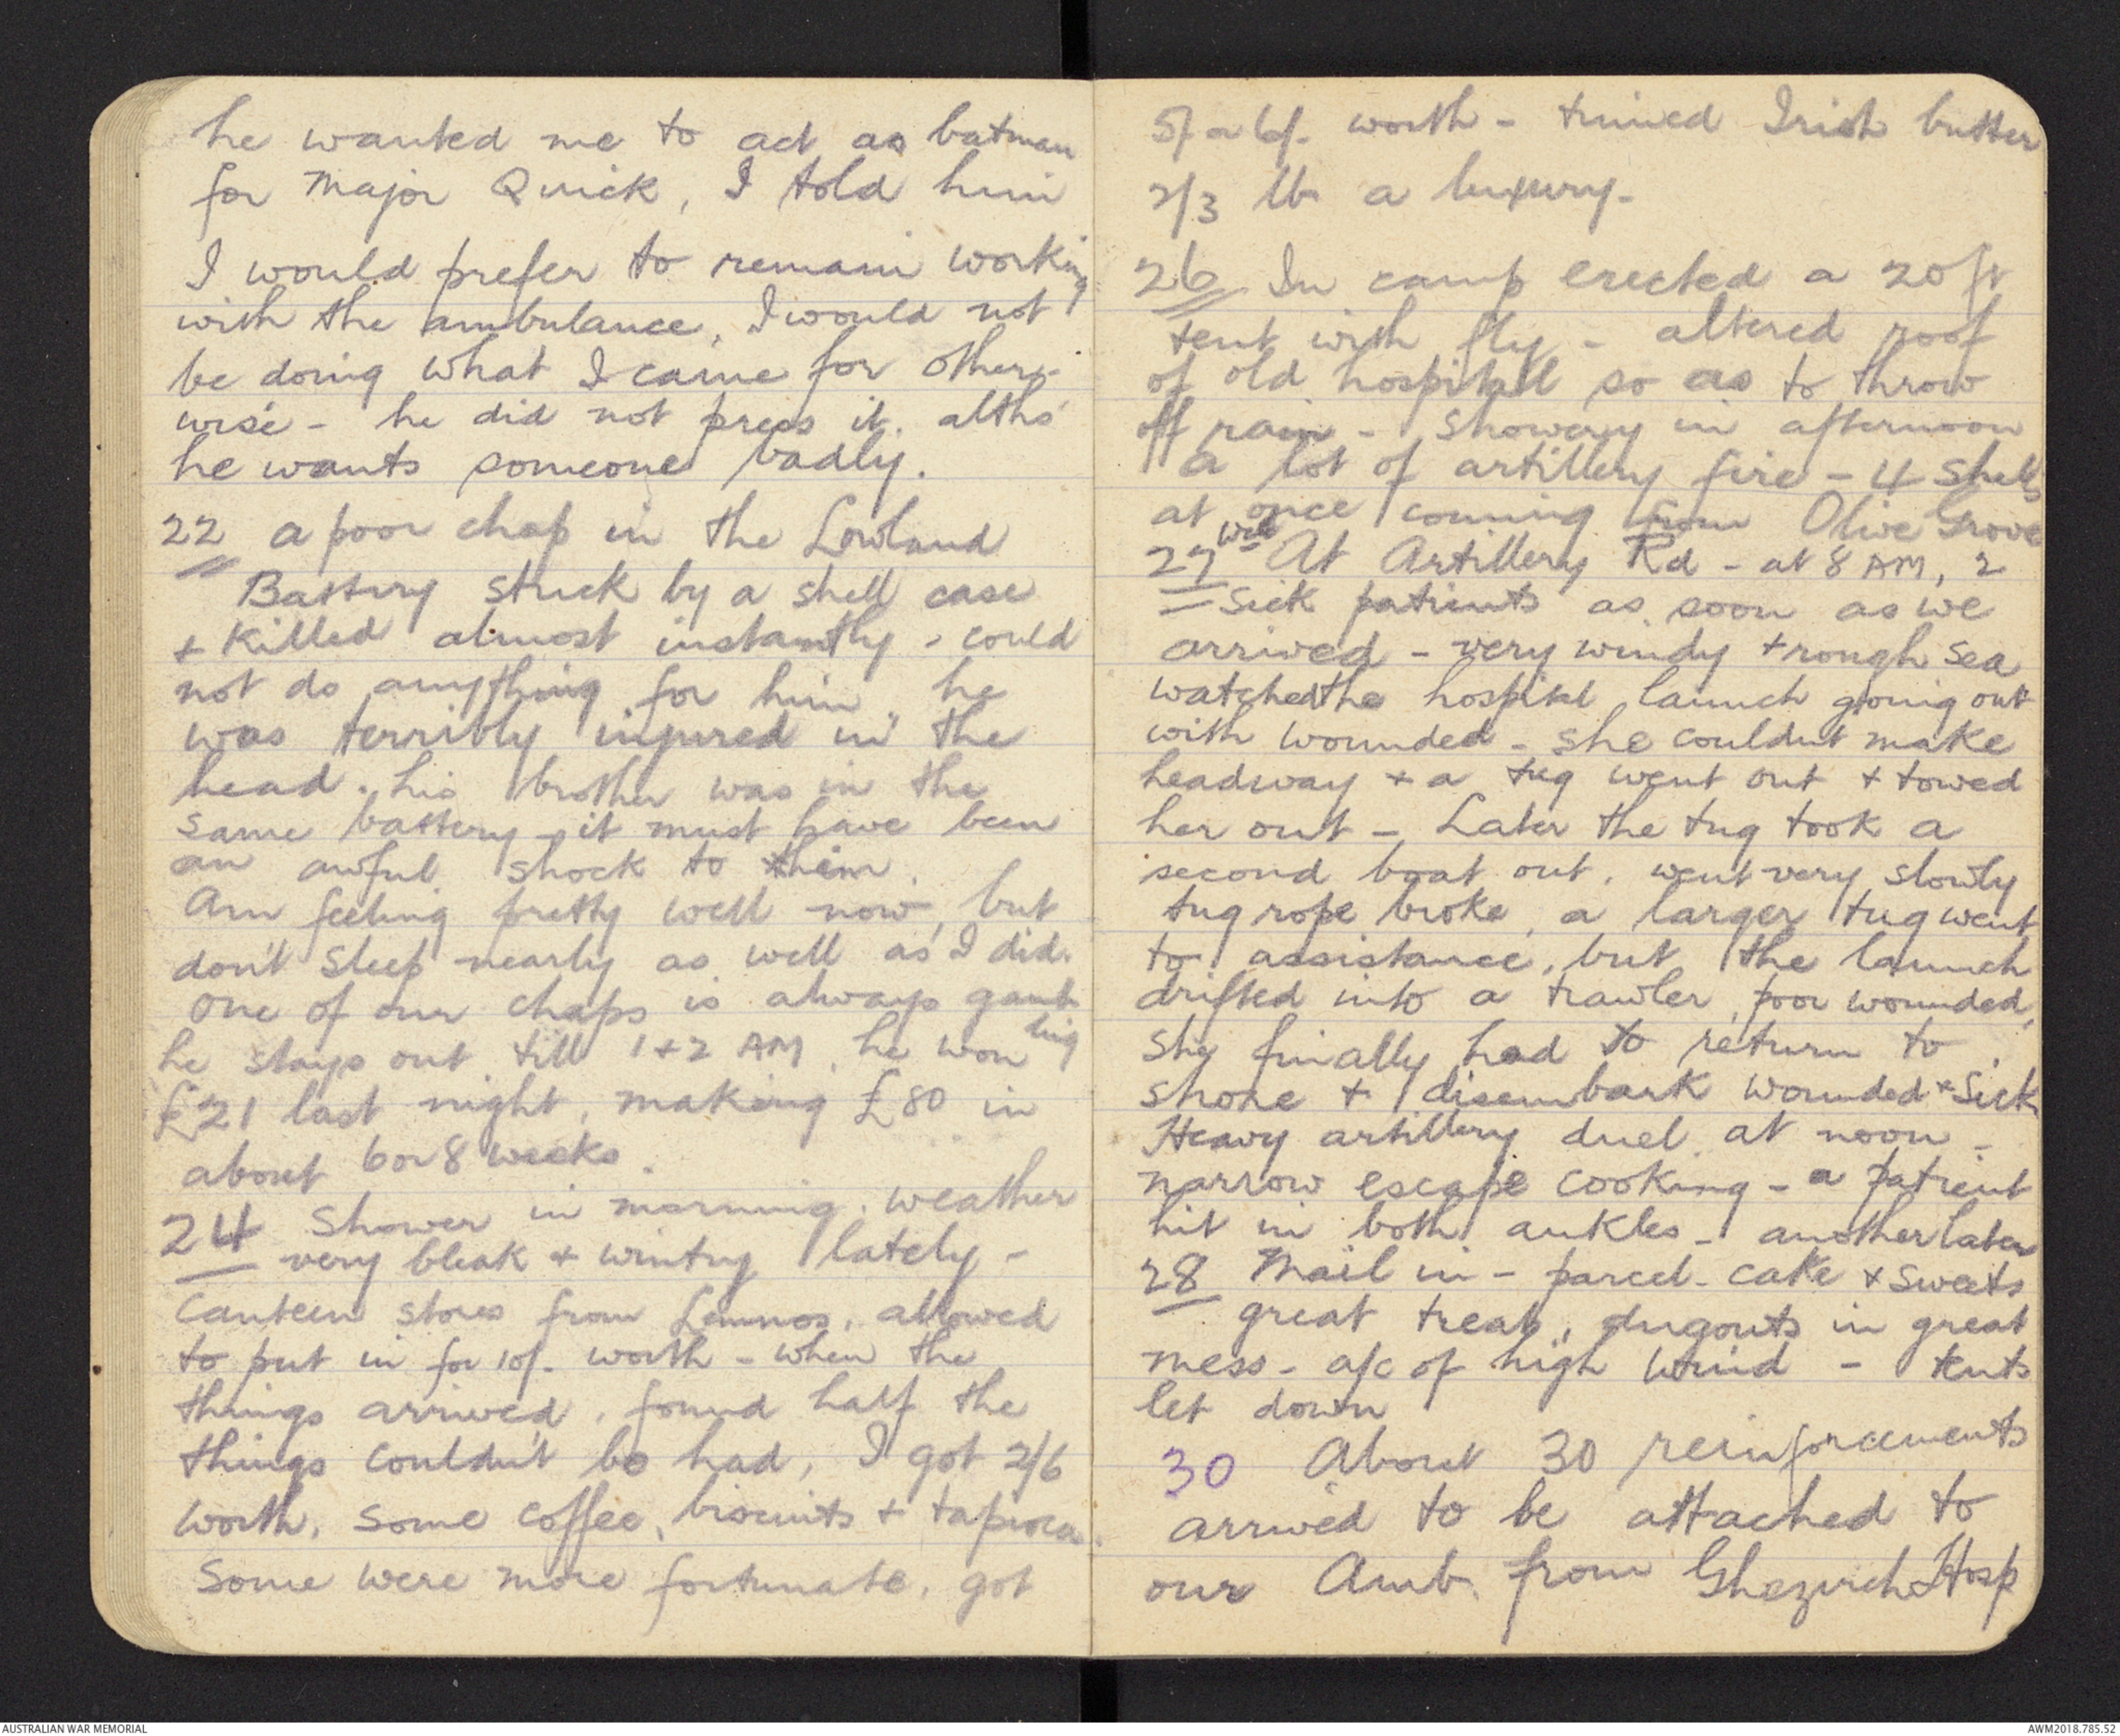 he wanted me to act as batman
for Major Quick, I told him
I would prefer to remain working
with the ambulance, I would not
be doing what I came for other-
wise - he did not press it. altho'
he wants someone badly.
22 a poor chap in the Lowland
Battery struck by a shell case
+ killed almost instantly, could
not do anything for him, he
was terribly injured in the
head. his brother was in the
same battery, it must have been
an awful shock to them.
Am feeling pretty well now, but
don't sleep nearly as well as I did.
One of our chaps is always gamb-
ling
he stays out till 1 + 2 AM, he won
£21 last night, making £80 in
about 6 or 8 weeks.
24 Shower in morning. weather
very bleak + wintry lately -
Canteen stores from Lemnos, allowed
to put in for 10/- worth - when the
things arrived, found half the
things couldn't be had, I got 2/6
worth, some coffee, biscuits + tapioca.
Some were more fortunate, got
5/- or 6/- worth - tinned Irish butter
2/3 lb a luxury.
26 In camp erected a 20 ft
tent with fly - altered roof
of old hospital so as to throw
off rain - showery in afternoon
a lot of artillery fire - 4 shells
at once coming from Olive Grove
27 Wed At Artillery Rd - at 8 AM, 2
sick patients as soon as we
arrived - very windy + rough sea
watched the hospital launch going out
with wounded - she couldn't make
headway + a tug went out + towed
her out - Later the tug took a
second boat out, went very slowly
tug rope broke, a larger tug went
to assistance, but the launch
drifted into a trawler, poor wounded,
she finally had to return to
shore + disembark wounded + sick
Heavy artillery duel at noon -
narrow escape cooking - a patient
hit in both ankles - another later
28 Mail in - parcel - cake + sweets
great treat, dugouts in great
mess - a/c of high wind - tents
let down
30 About 30 reinforcements
arrived to be attached to
our Amb. from Ghezireh Hosp
AUSTRALIAN WAR MEMORIAL
AWM2018.785.52